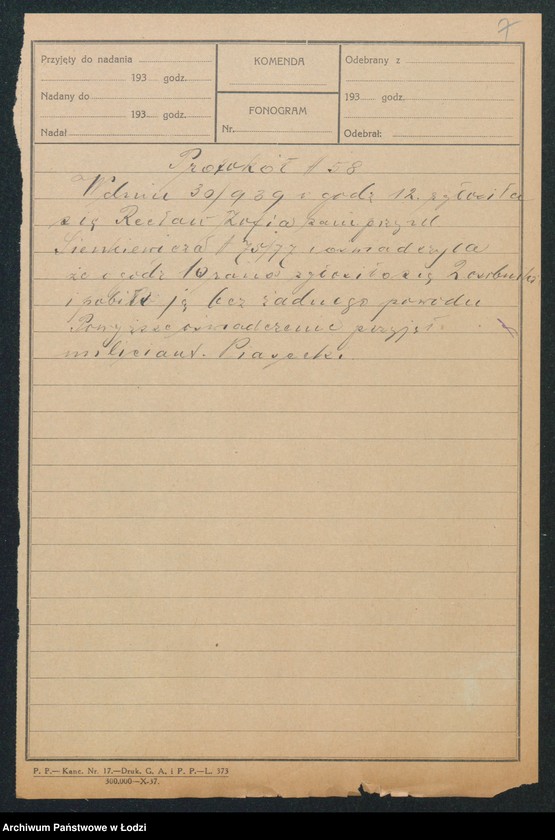 7
Przyjęty do nadania
193 godz.
Nadany do
193 godz.
Nadał
KOMENDA
FONOGRAM
Nr.
Odebrany z
193 godz.
Odebrał:
Protokół # 58
W dniu 30/9 39 o godz 12. zgłosiła
się Recław Zofia zam przy ul
Sienkiewicza # 75/77 i oświadczyła
że o godz 10 rano zgłosiło się 2 osobników
i pobili ją bez żadnego powodu
Powyższe oświadczenie przyjął
milicjant. Piasecki.
P. P.— Kanc. Nr. 17.—Druk. G. A. i P. P.—L. 573
300.000—X-37.
Archiwum Państwowe w Łodzi